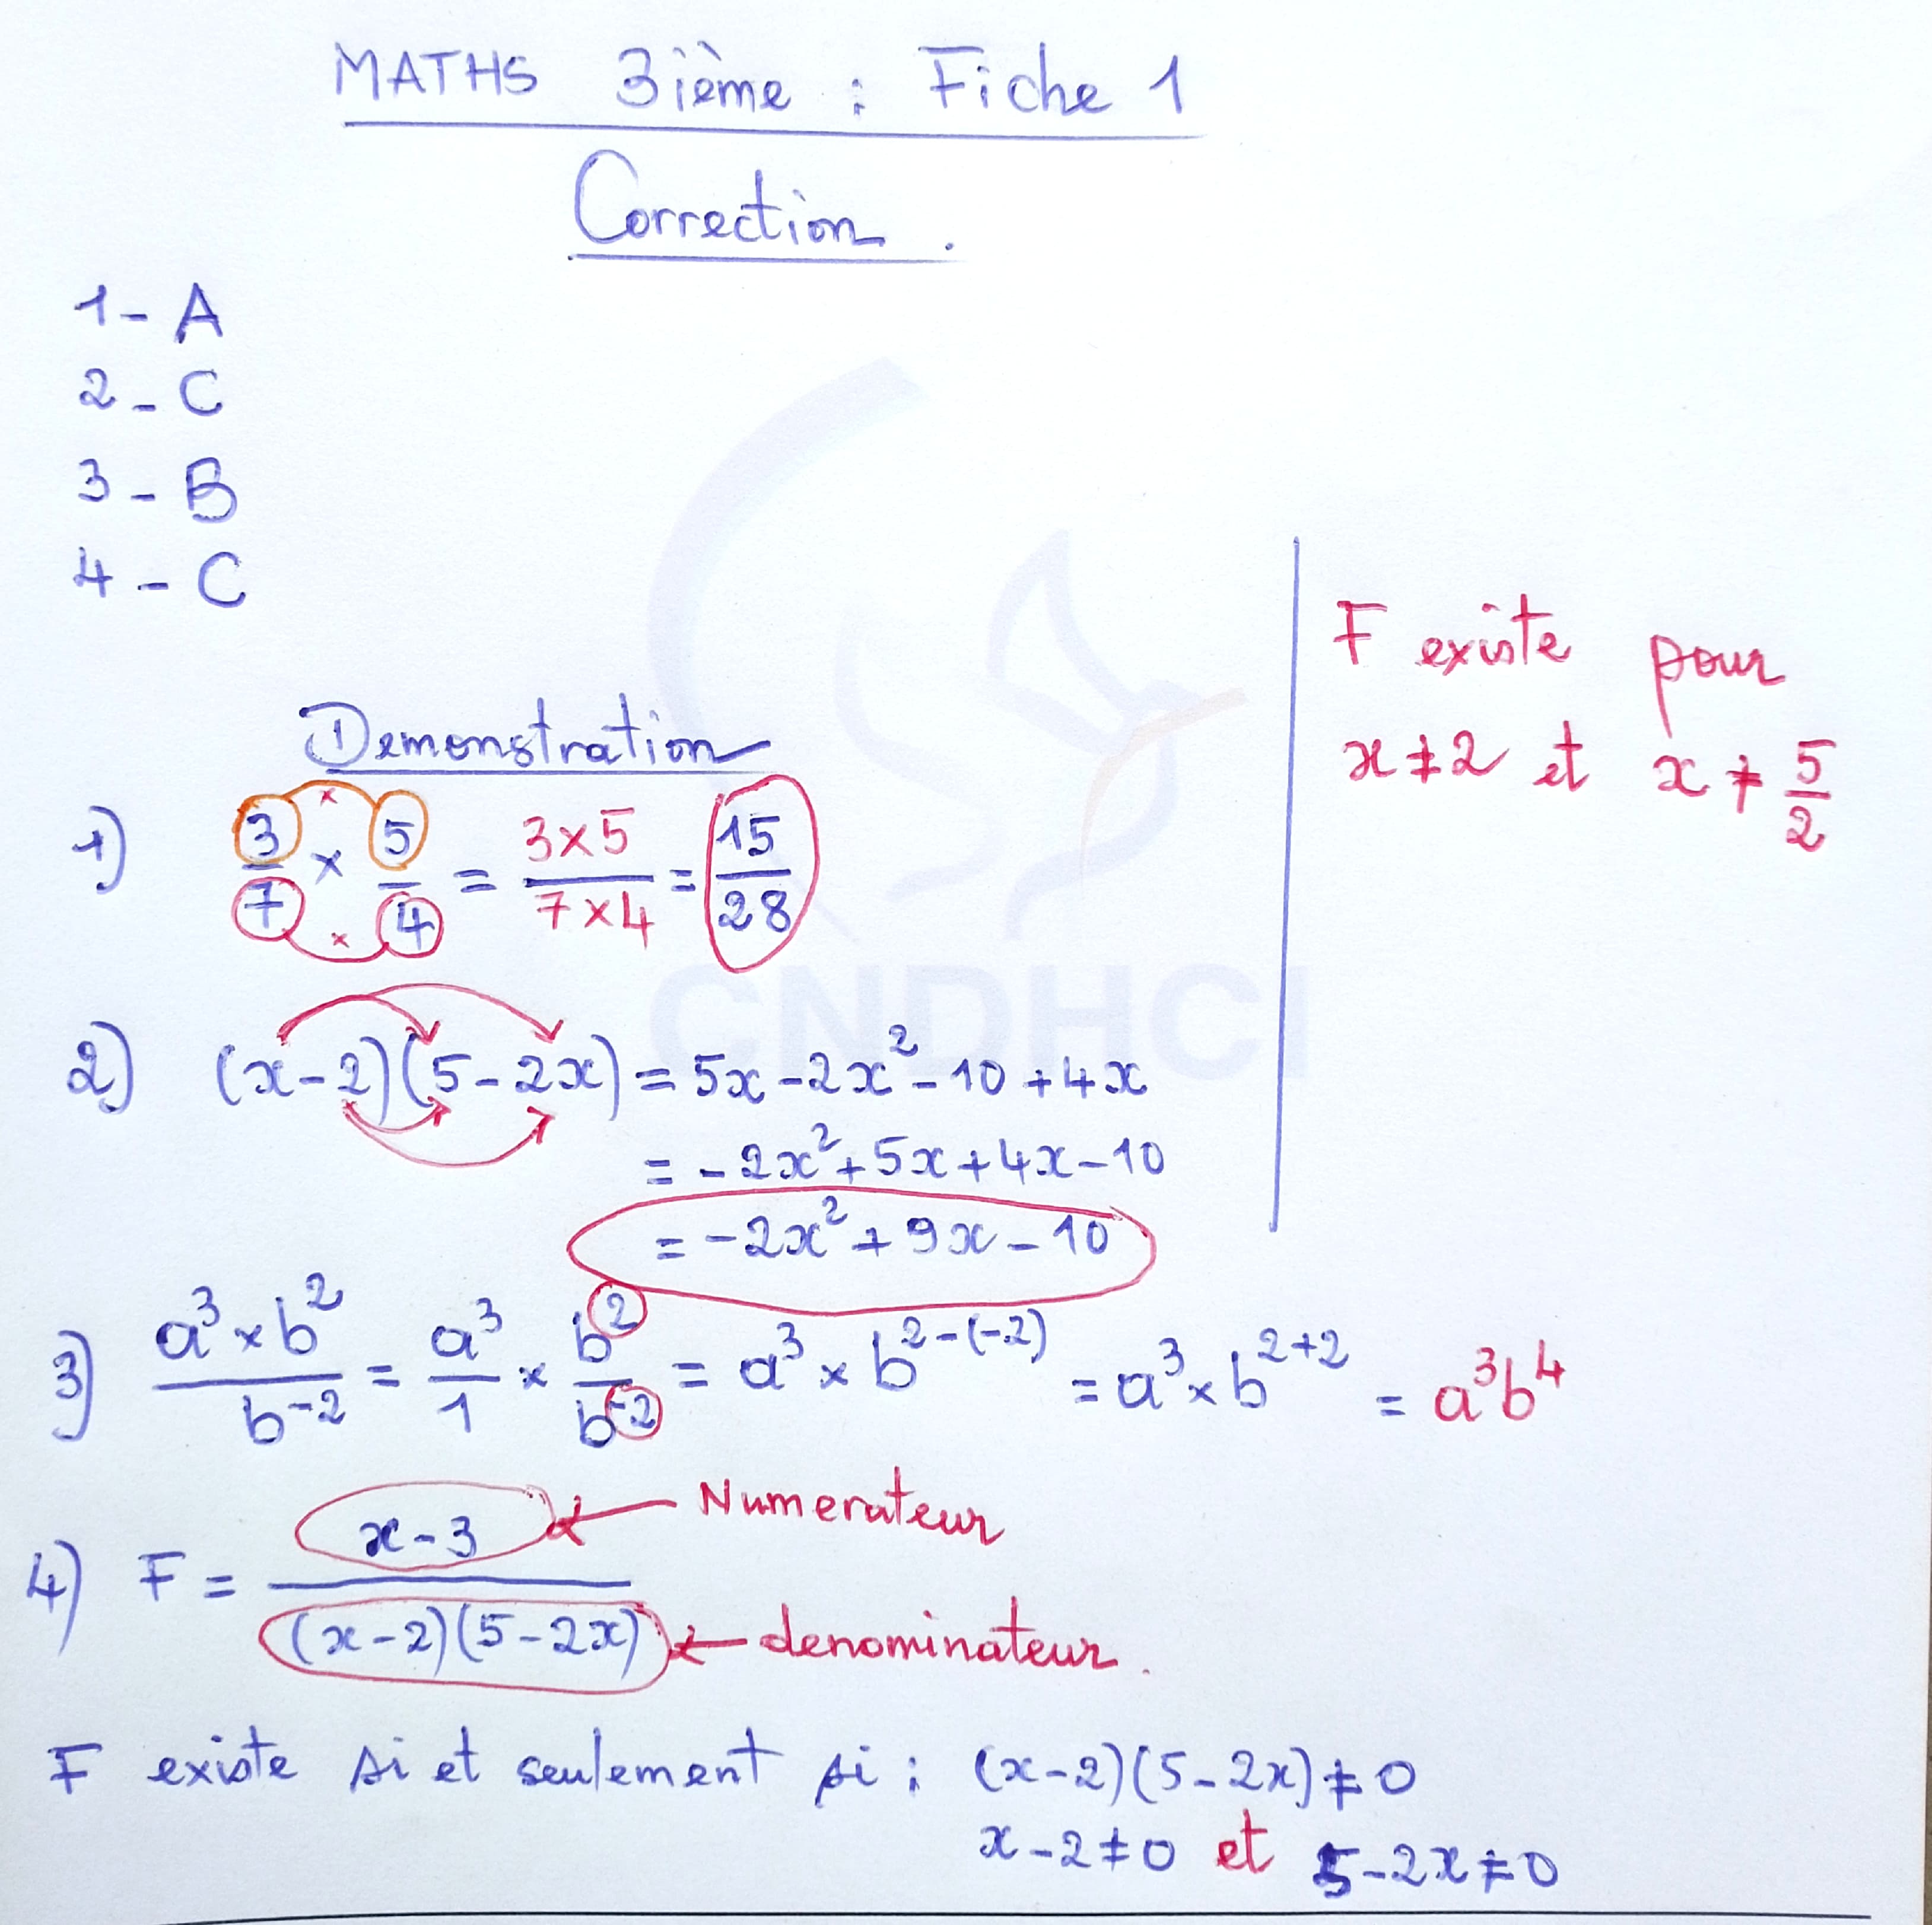 MATHS 3ième : Fiche 1
Correction.
1- A
2- C
3- B
4- C
Demonstration
1) 3/7 × 5/4 = (3×5)/(7×4) = 15/28
× ×
2) (x-2)(5-2x) = 5x-2x²-10+4x
= -2x²+5x+4x-10
= -2x²+9x-10
3) (a³×b²)/b⁻² = a³/1 × b²/b⁻² = a³×b²⁻⁽⁻²⁾ = a³×b²⁺² = a³b⁴
4) F = (x-3)/((x-2)(5-2x))
Numerateur
denominateur.
F existe si et seulement si : (x-2)(5-2x)≠0
x-2≠0 et 5-2x≠0
F existe pour
x≠2 et x≠5/2
CNDHCI